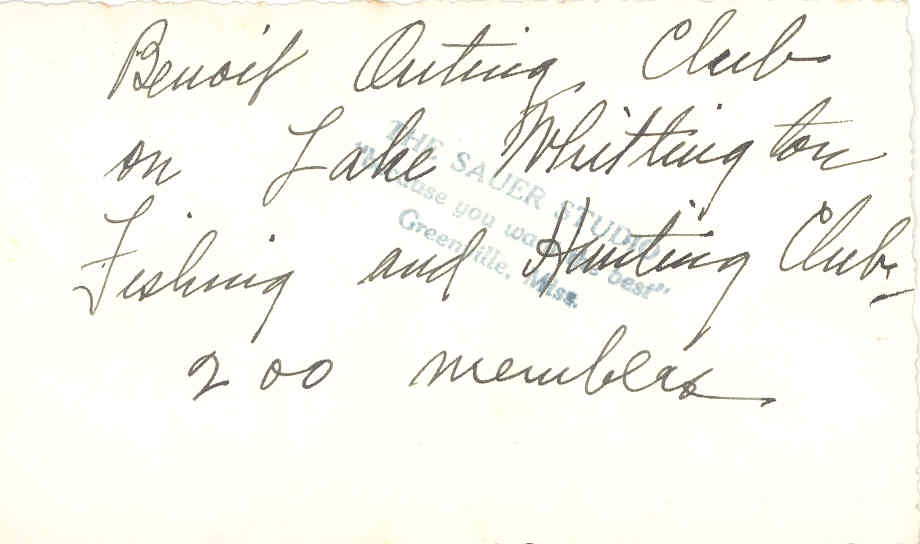 Benoit Outing Club
on Lake Whittington
Fishing and Hunting Club,
200 members
THE SAUER STUDIO
"Because you want the best"
Greenville, Miss.